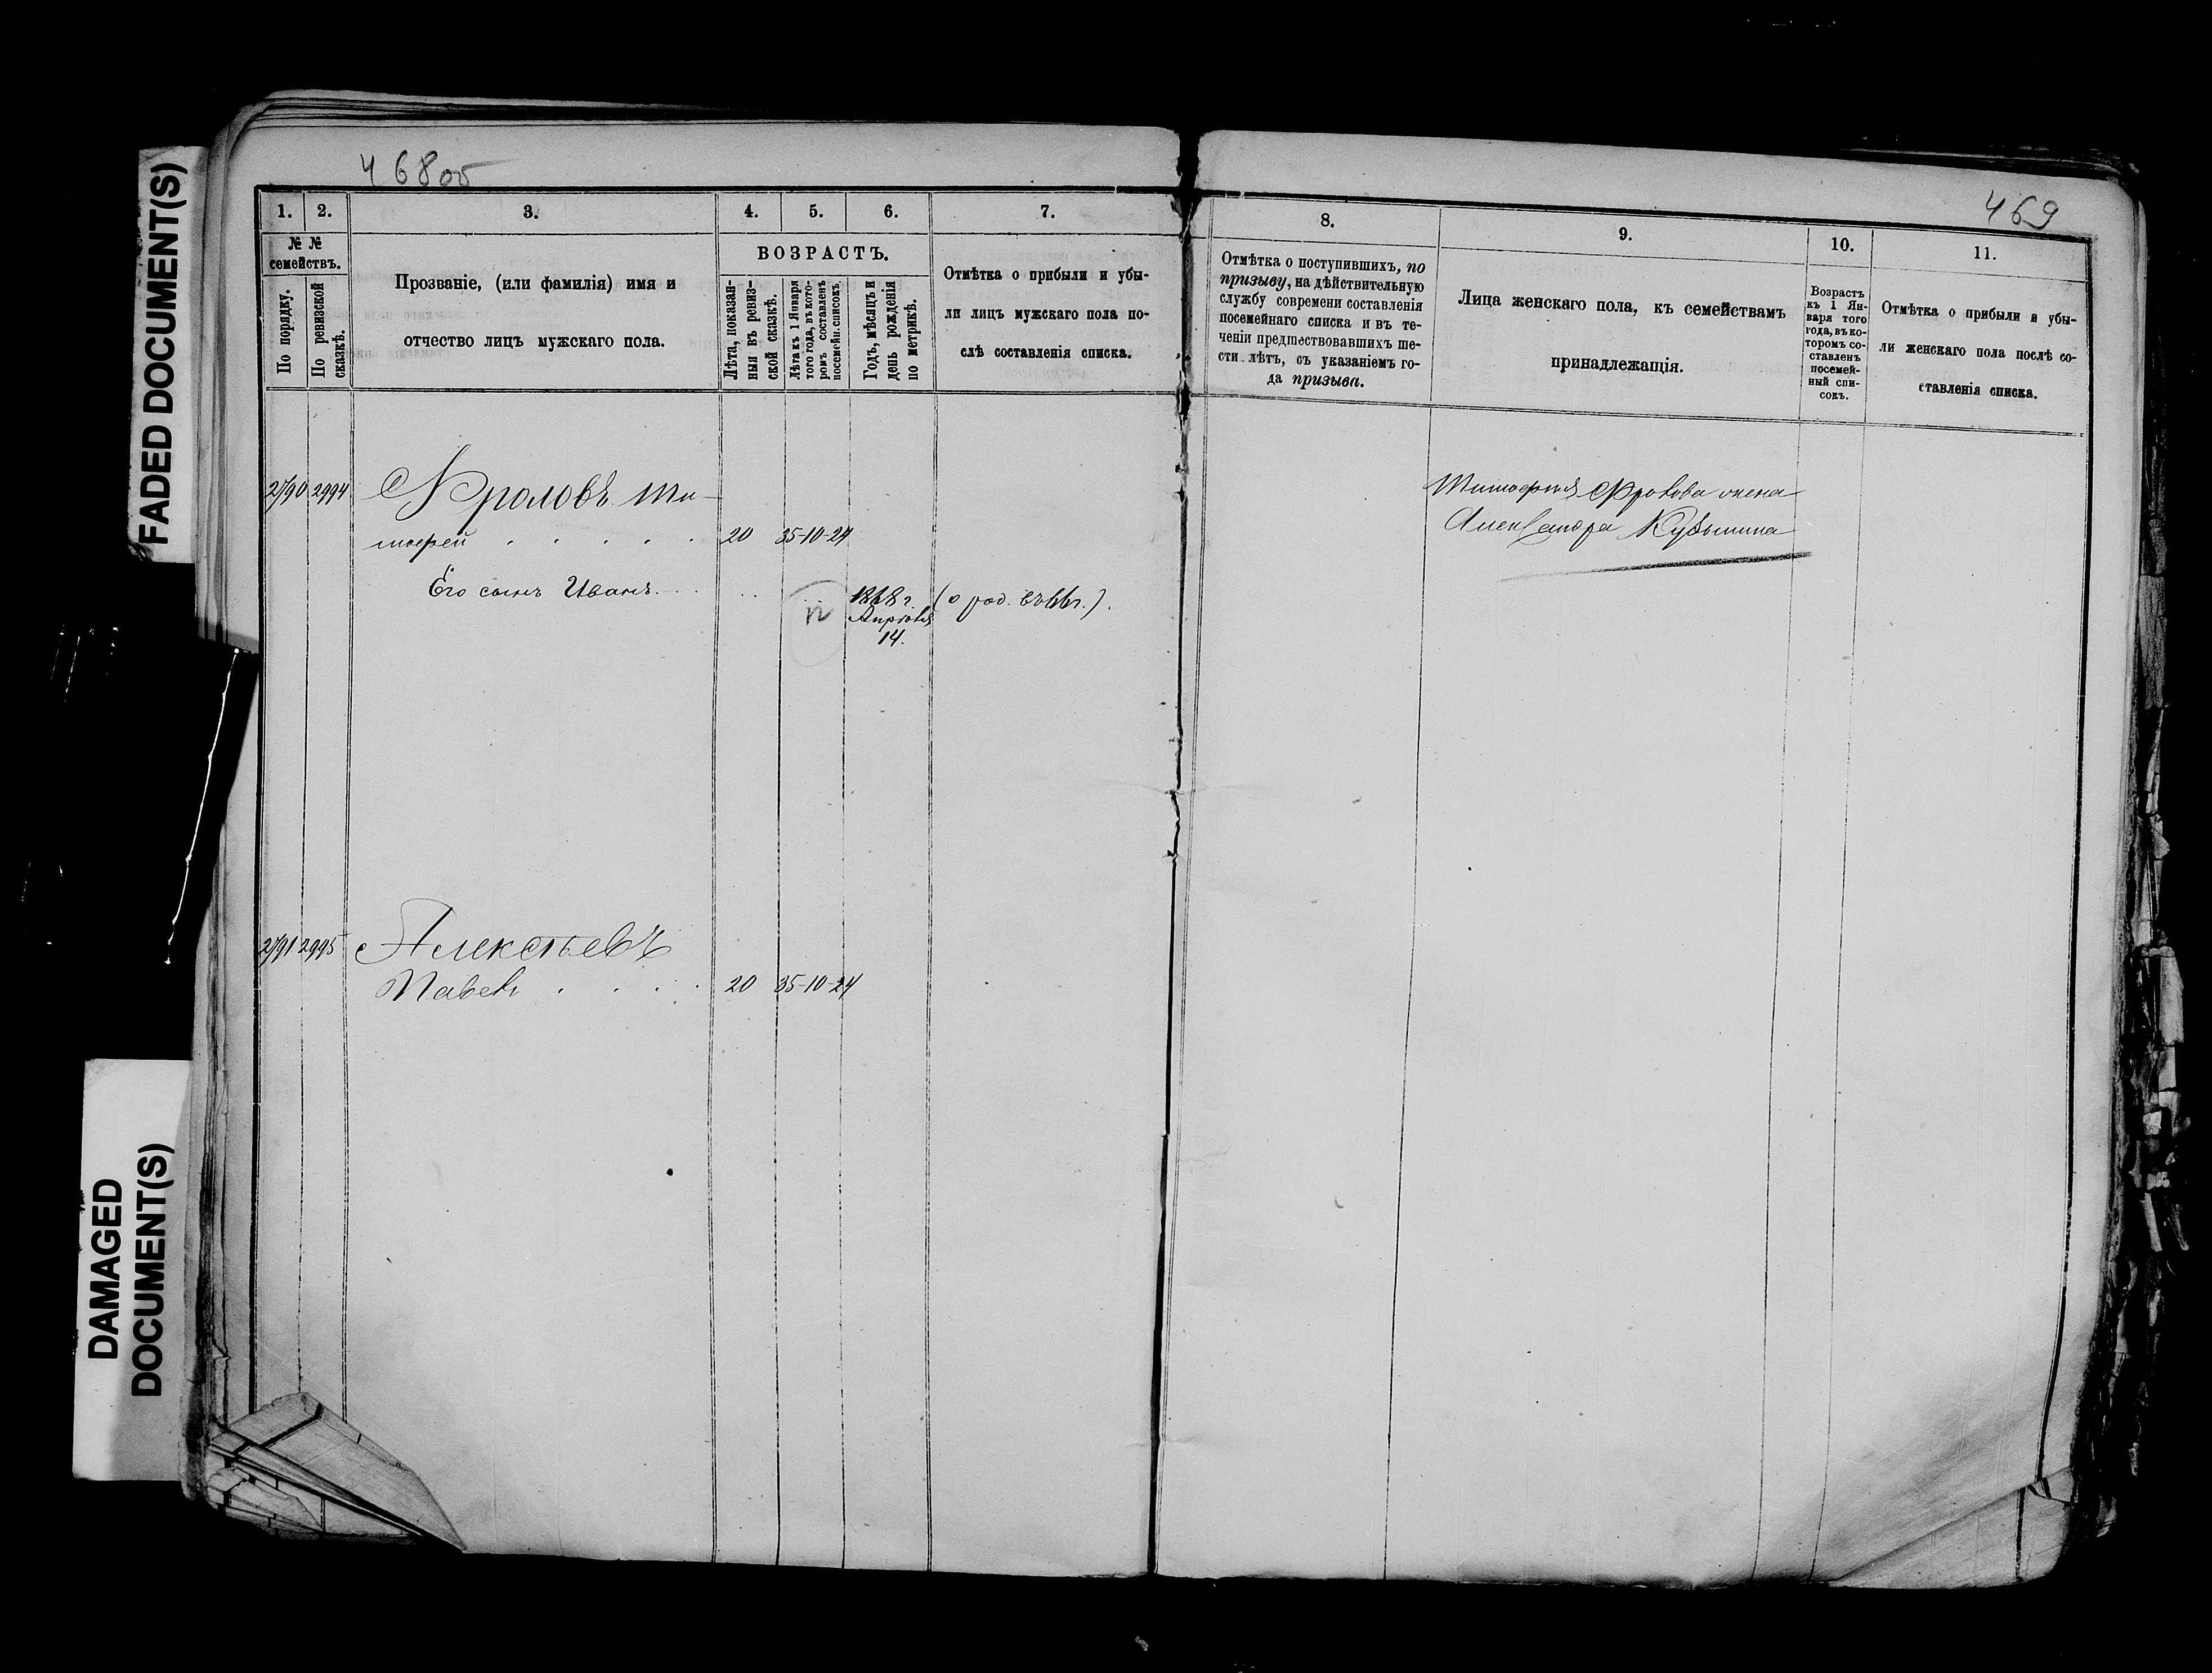 FADED DOCUMENT(S)
DAMAGED
DOCUMENT(S)
468об
469
1. 2. 3. 4. 5. 6. 7.
№ №
семействъ.
По порядку.
По ревизской
сказкѣ.
Прозваніе, (или фамилія) имя и
отчество лицъ мужскаго пола.
ВОЗРАСТЪ.
Лѣта, показан-
ныя въ ревиз-
ской сказкѣ.
Лѣта къ 1 Января
того года, въ кото-
ромъ составленъ
посемейн. списокъ.
Годъ, мѣсяцъ и
день рожденія
по метрикѣ.
Отмѣтка о прибыли и убы-
ли лицъ мужскаго пола по-
слѣ составленія списка.
8. 9. 10. 11.
Отмѣтка о поступившихъ, по
призыву, на дѣйствительную
службу современи составленія
посемейнаго списка и въ те-
ченіи предшествовавшихъ ше-
сти лѣтъ, съ указаніемъ го-
да призыва.
Лица женскаго пола, къ семействамъ
принадлежащія.
Возрастъ
къ 1 Ян-
варя того
года, въ ко-
торомъ со-
ставленъ
посемей-
ный спи-
сокъ.
Отмѣтка о прибыли и убы-
ли женскаго пола послѣ со-
ставленія списка.
2790 2994 Фроловъ Ти-
мофей . . . . . 20 35-10-24
Его сынъ Иванъ. 1868 г. (о род. въ 66 г.).
Апрѣля
14.
Тимофея Фролова жена
Александра Кузьмина
2791 2995 Алексѣевъ
Павелъ . . . . 20 35-10-24